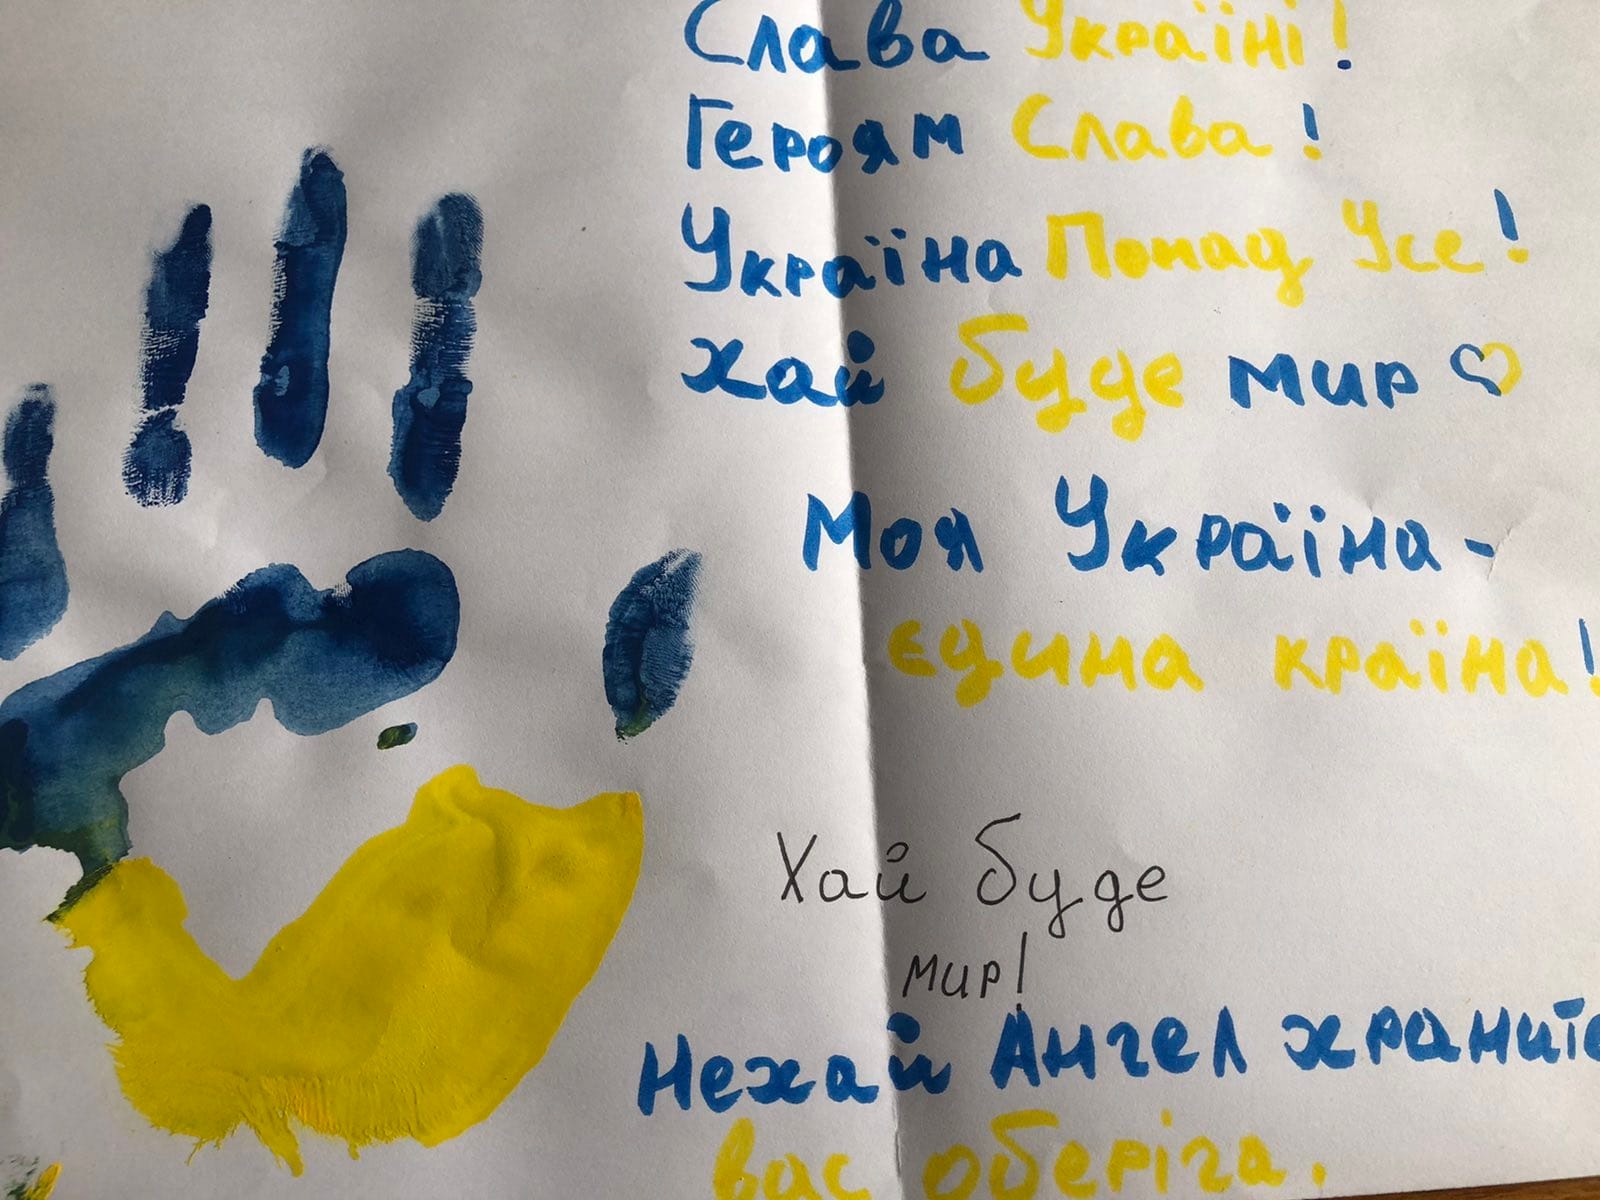 Слава Україні!
Героям Слава!
Україна Понад Усе!
хай буде мир
Моя Україна -
єдина країна!
Хай буде
мир!
Нехай Ангел
вас оберіга.